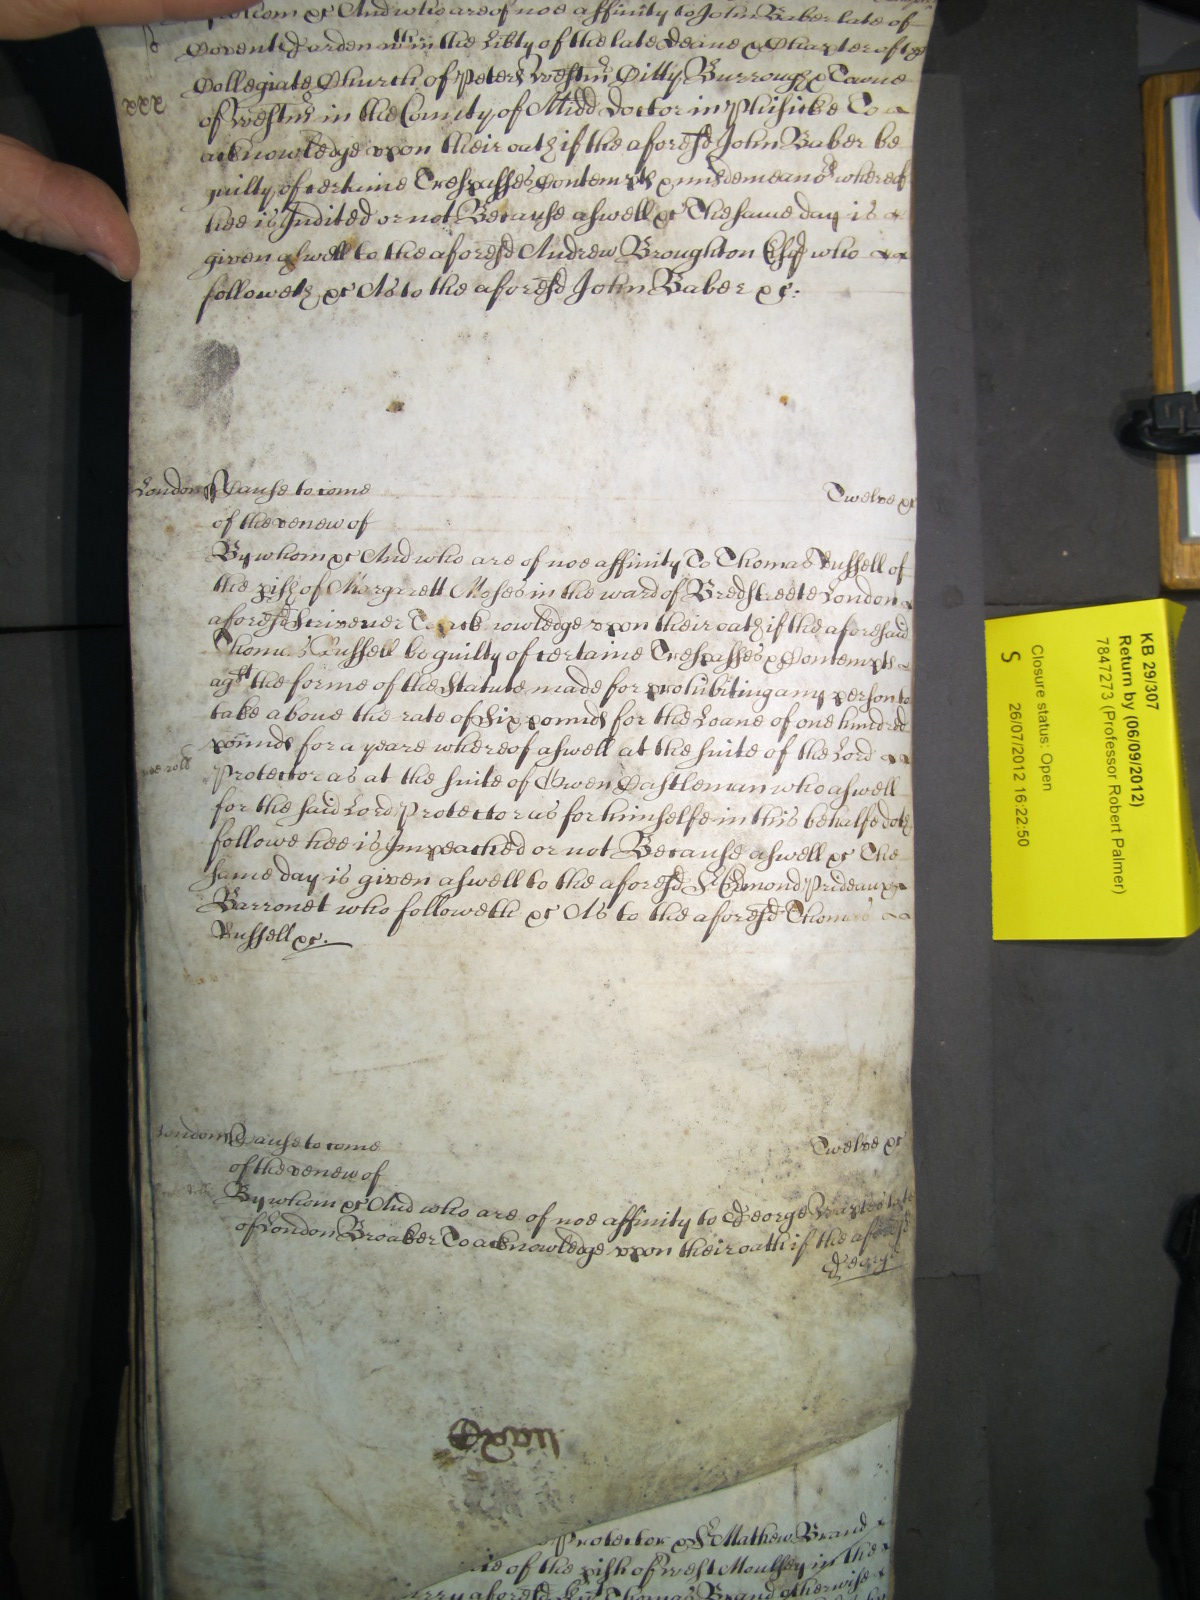 By whom &c And who are of noe affinity to John Baber late of
Covent Garden wthin the Libty of the late Deane & Chapter of the
Collegiate Church of Peters Westmr Citty Burrough & Towne
xxx
of Westmr in the County of Midd Doctor in Phisicke To
acknowledge upon their oath if the aforesd John Baber be
guilty of certaine Trespasses Contempts & misdemeanors whereof
hee is Indited or not Because aswell &c The same day is
given aswell to the aforesd Andrew Broughton Esqr who
followeth &c As to the aforesd John Baber &c:
London Cause to come Twelve &c
of the venew of
By whom &c And who are of noe affinity To Thomas Russell of
the pish of Margarett Moses in the ward of Bredstreete London
aforesd Scrivener To acknowledge upon their oath if the aforesaid
Thomas Russell be guilty of certaine Trespasses & Contempts
agt the forme of the Statute made for prohibiting any person to
take above the rate of Six pounds for the Loane of one hundred
pounds for a yeare whereof aswell at the suite of the Lord
Protector as at the suite of Owen Castleman who aswell
for the said Lord Protector as for himselfe in this behalfe doth
followe hee is Impeached or not Because aswell &c The
same day is given aswell to the aforesd Sr Edmond Prideaux
Barronet who followeth &c As to the aforesd Thomas
Russell &c.
London Cause to come Twelve &c
of the venew of
By whom &c And who are of noe affinity to George late
of London Broaker To acknowledge upon their oath if the aforesd
George
Protector & Sr Mathew Brand
of the pish of West Moulsey in the
aforesd Knt Thomas Brand otherwise
KB 29/307
Return by (06/09/2012)
7847273 (Professor Robert Palmer)
Closure status: Open
S 26/07/2012 16:22:50